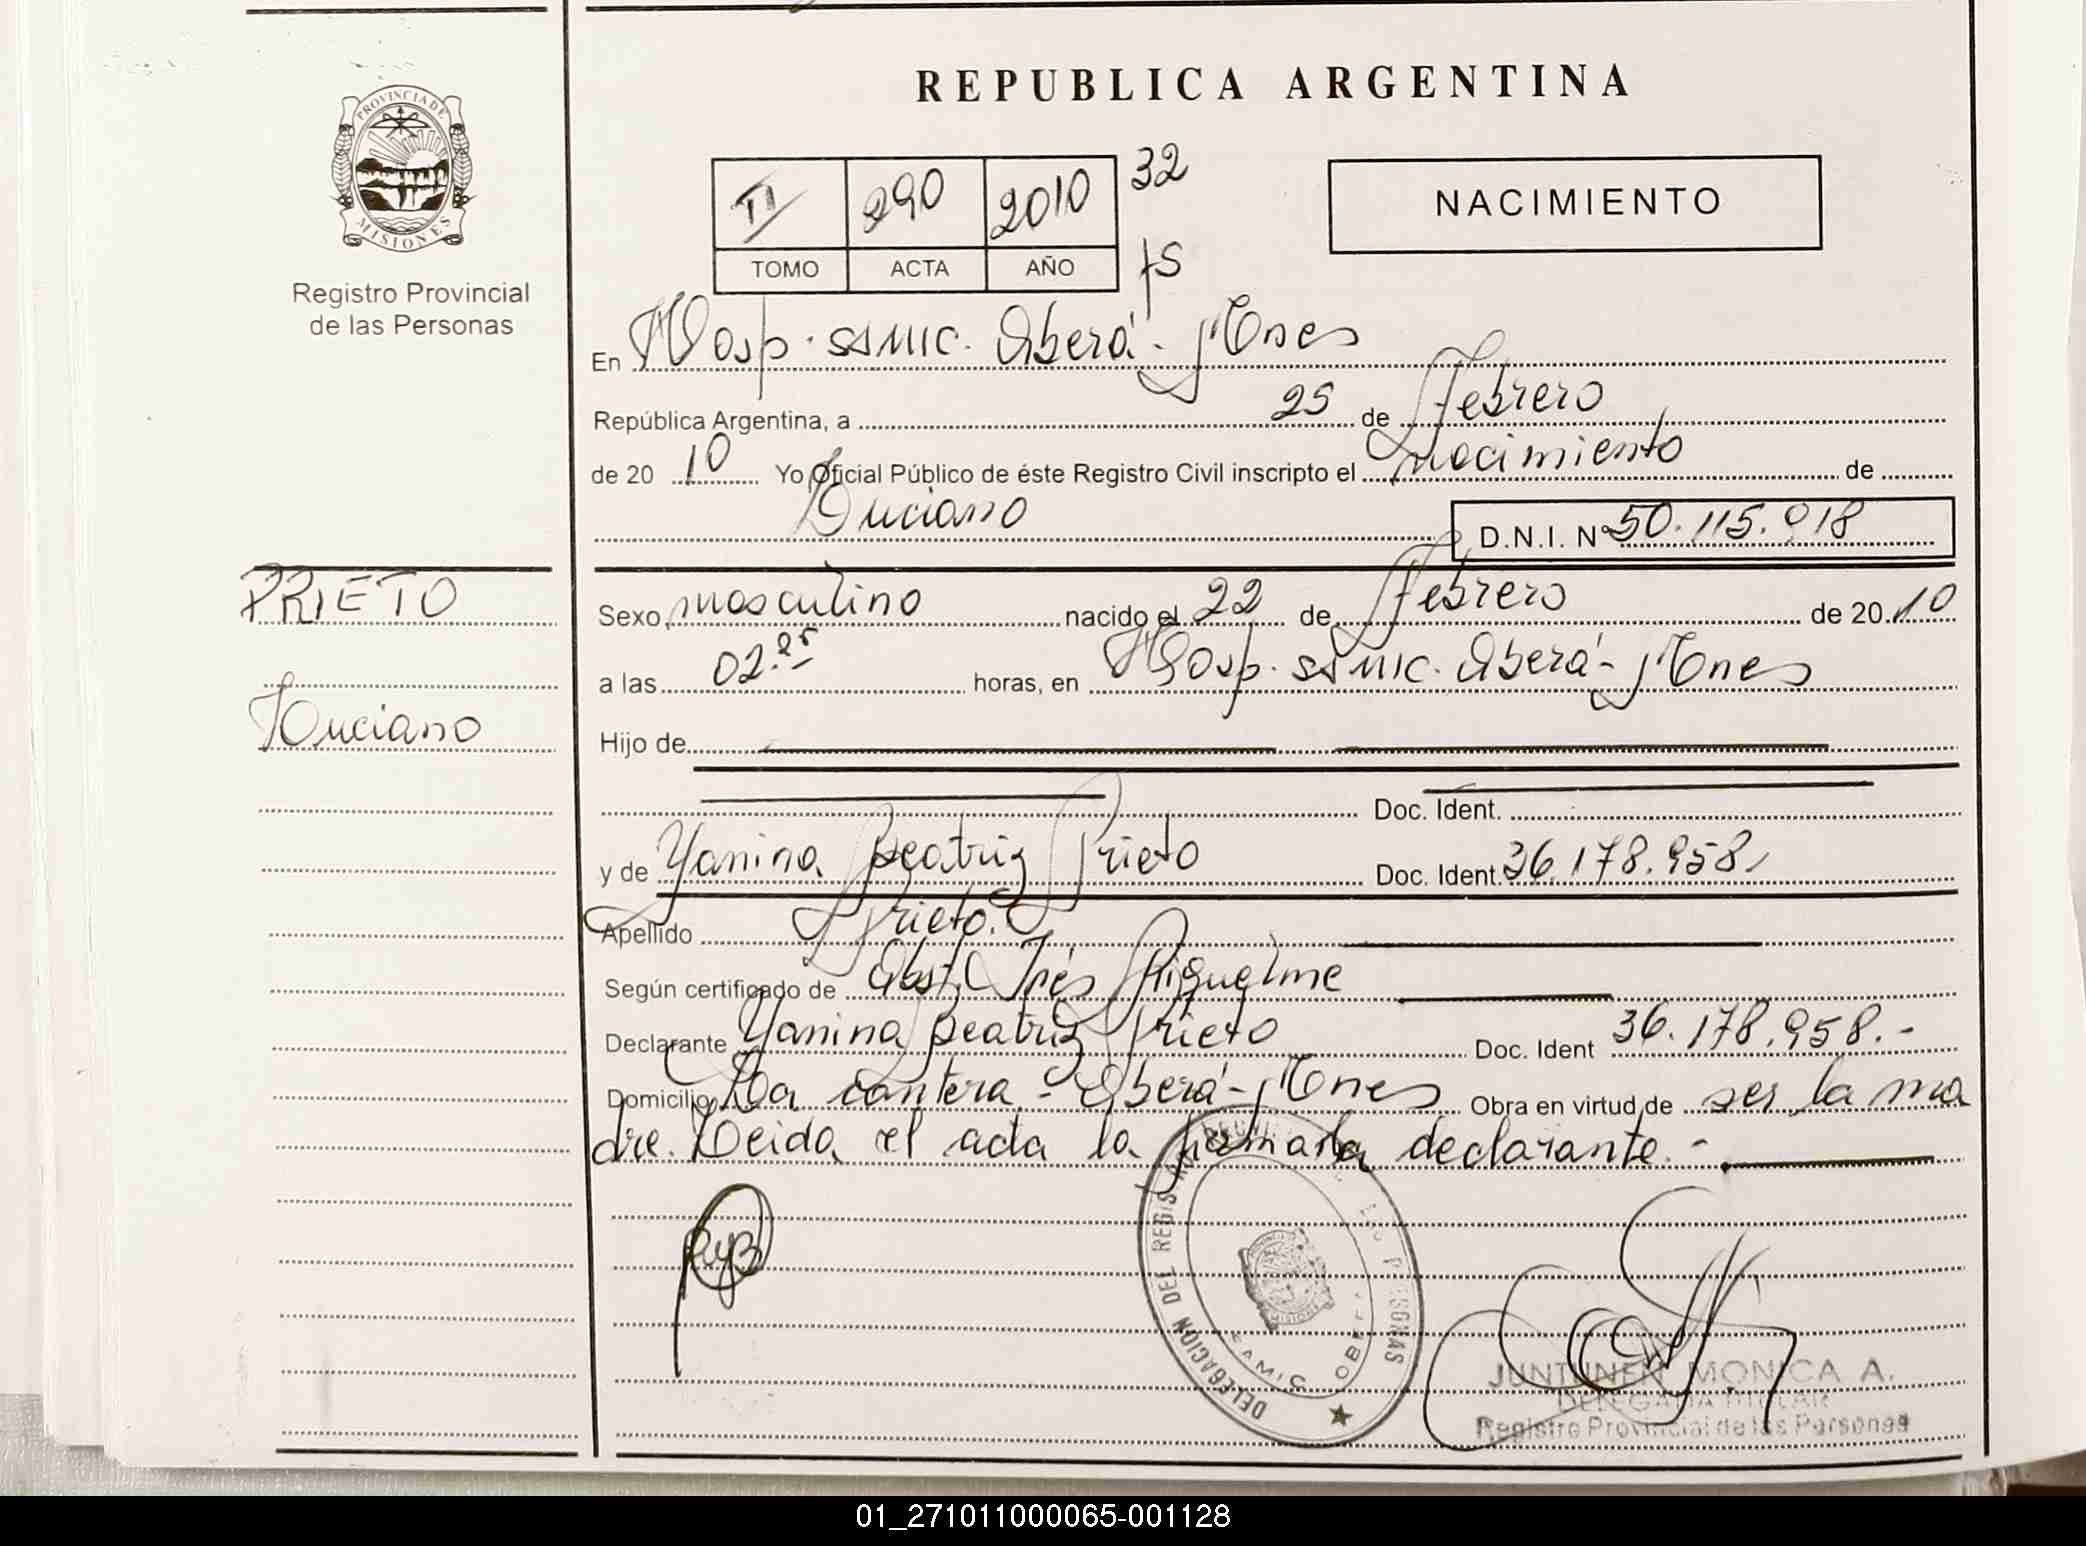 REPUBLICA ARGENTINA
PROVINCIA DE
MISIONES
Registro Provincial
de las Personas
II 290 2010 32
TOMO ACTA AÑO
NACIMIENTO
En Hosp. SAMIC. Oberá - Mnes
República Argentina, a 25 de Febrero
de 20 10 Yo Oficial Público de éste Registro Civil inscripto el nacimiento de
Luciano
D.N.I. Nº 50.115.918
PRIETO
Luciano
Sexo masculino nacido el 22 de Febrero de 20 10
a las 02.25 horas, en Hosp. SAMIC. Oberá - Mnes
Hijo de
Doc. Ident.
y de Yanina Beatriz Prieto Doc. Ident. 36.178.958
Apellido Prieto.
Según certificado de Obst. Riquelme
Declarante Yanina Beatriz Prieto Doc. Ident 36.178.958.-
Domicilio La cantera - Oberá - Mnes Obra en virtud de ser la ma
dre. Leida el acta la firma la declarante.-
DELEGACION DEL REGIS PERSONAS
MISIONES
OBERA
JUNTUNEN MONICA A.
DELEGADA TITULAR
Registro Provincial de las Personas
01_271011000065-001128